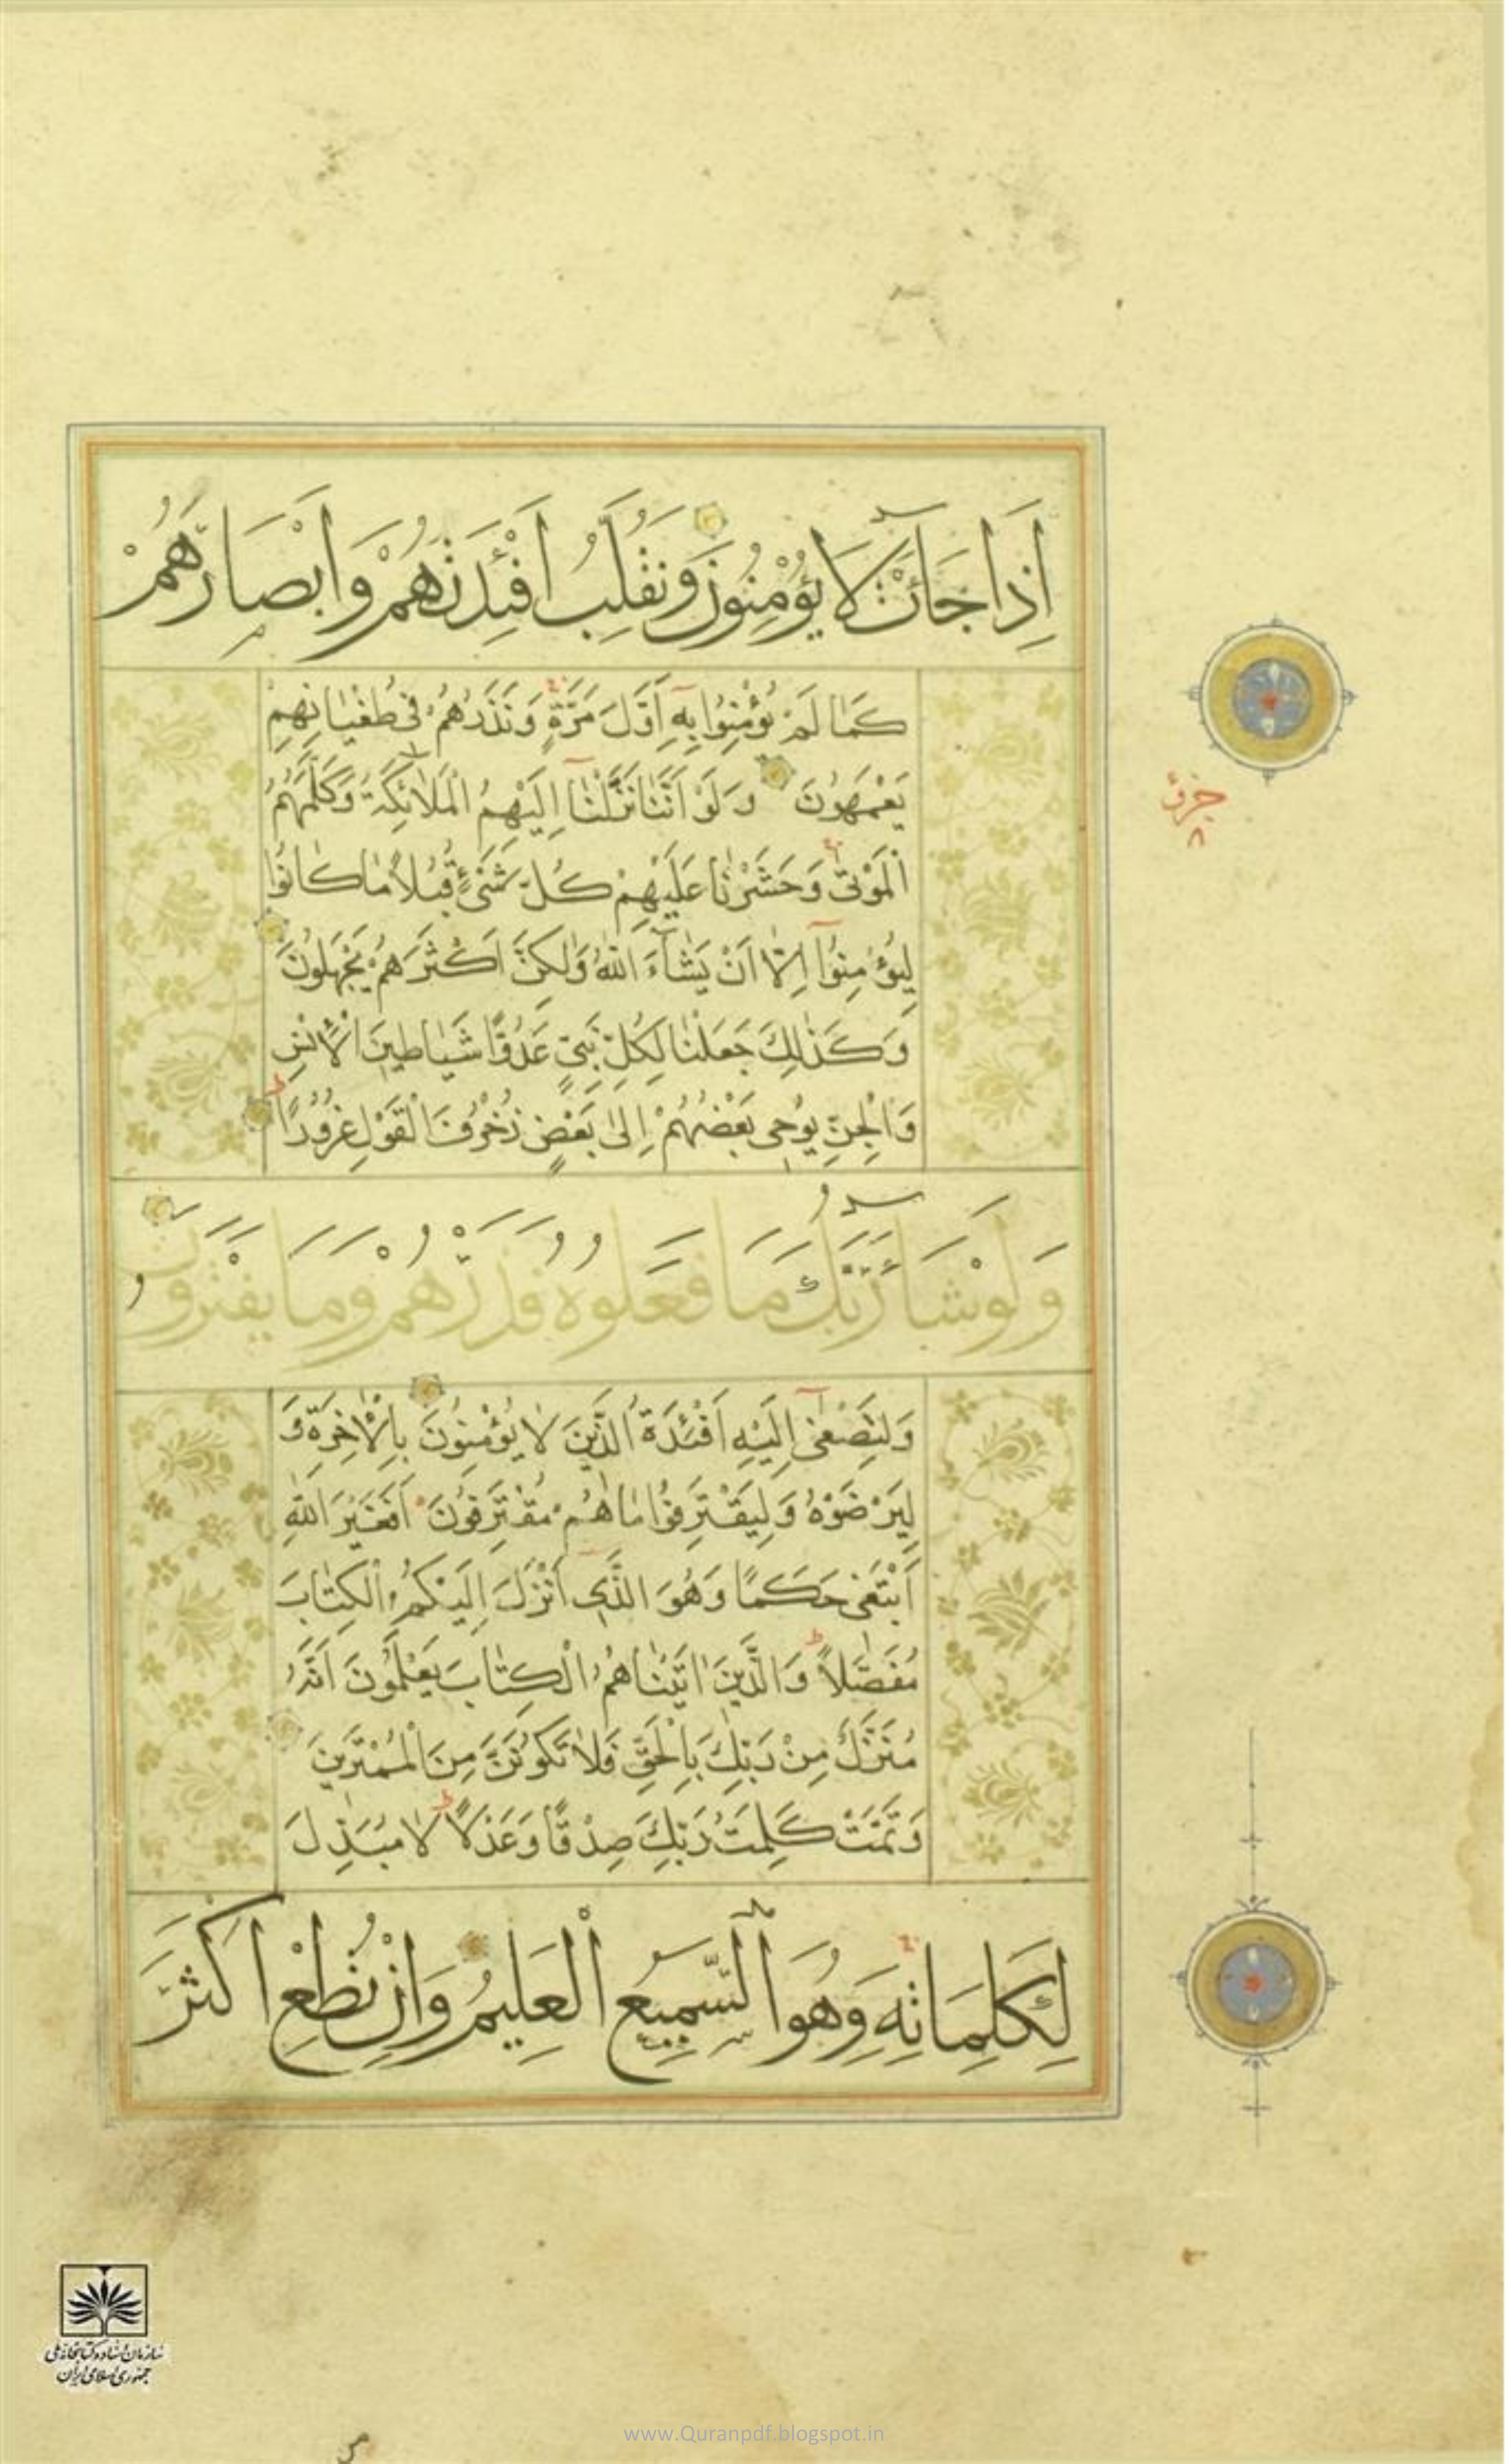 اِذَا جَائَتْ لَا يُؤْمِنُونَ وَنُقَلِّبُ اَفْئِدَتَهُمْ وَاَبْصَارَهُمْ
كَمٰا لَمْ يُؤْمِنُوا بِهِ اَوَّلَ مَرَّةٍ وَنَذَرُهُمْ فى طُغْيٰانِهِمْ
يَعْمَهُونَ وَلَوْ اَنَّنٰا نَزَّلْنٰا اِلَيْهِمُ الْمَلٰائِكَةَ وَكَلَّمَهُمُ
الْمَوْتىٰ وَحَشَرْنٰا عَلَيْهِمْ كُلَّ شَىْءٍ قُبُلاً مٰا كٰانُوا
لِيُؤْمِنُوا اِلّٰا اَنْ يَشٰاءَ اللّٰهُ وَلٰكِنَّ اَكْثَرَهُمْ يَجْهَلُونَ
وَكَذٰلِكَ جَعَلْنٰا لِكُلِّ نَبِىٍّ عَدُوًّا شَيٰاطينَ الْاِنْسِ
وَالْجِنِّ يُوحى بَعْضُهُمْ اِلىٰ بَعْضٍ زُخْرُفَ الْقَوْلِ غُرُورًا
وَلَوْ شَاءَ رَبُّكَ مَا فَعَلُوهُ فَذَرْهُمْ وَمَا يَفْتَرُونَ
وَلِتَصْغىٰ اِلَيْهِ اَفْئِدَةُ الَّذينَ لٰا يُؤْمِنُونَ بِالْاٰخِرَةِ وَ
لِيَرْضَوْهُ وَلِيَقْتَرِفُوا مٰا هُمْ مُقْتَرِفُونَ اَفَغَيْرَ اللّٰهِ
اَبْتَغى حَكَمًا وَهُوَ الَّذى اَنْزَلَ اِلَيْكُمُ الْكِتٰابَ
مُفَصَّلاً وَالَّذينَ اٰتَيْنٰاهُمُ الْكِتٰابَ يَعْلَمُونَ اَنَّهُ
مُنَزَّلٌ مِنْ رَبِّكَ بِالْحَقِّ فَلٰا تَكُونَنَّ مِنَ الْمُمْتَرينَ
وَتَمَّتْ كَلِمَتُ رَبِّكَ صِدْقًا وَعَدْلًا لٰا مُبَدِّلَ
لِكَلِمَاتِهِ وَهُوَ السَّمِيعُ الْعَلِيمُ وَاِنْ تُطِعْ اَكْثَرَ
سازمان اسناد و کتابخانه ملی
جمهوری اسلامی ایران
www.Quranpdf.blogspot.in